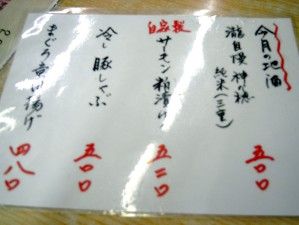 今月の地酒
瀧自慢 神の穂
純米(三重)
五〇〇
自家製
サーモン粕漬け
五二〇
冷し豚しゃぶ
五〇〇
まぐろ竜田揚げ
四八〇